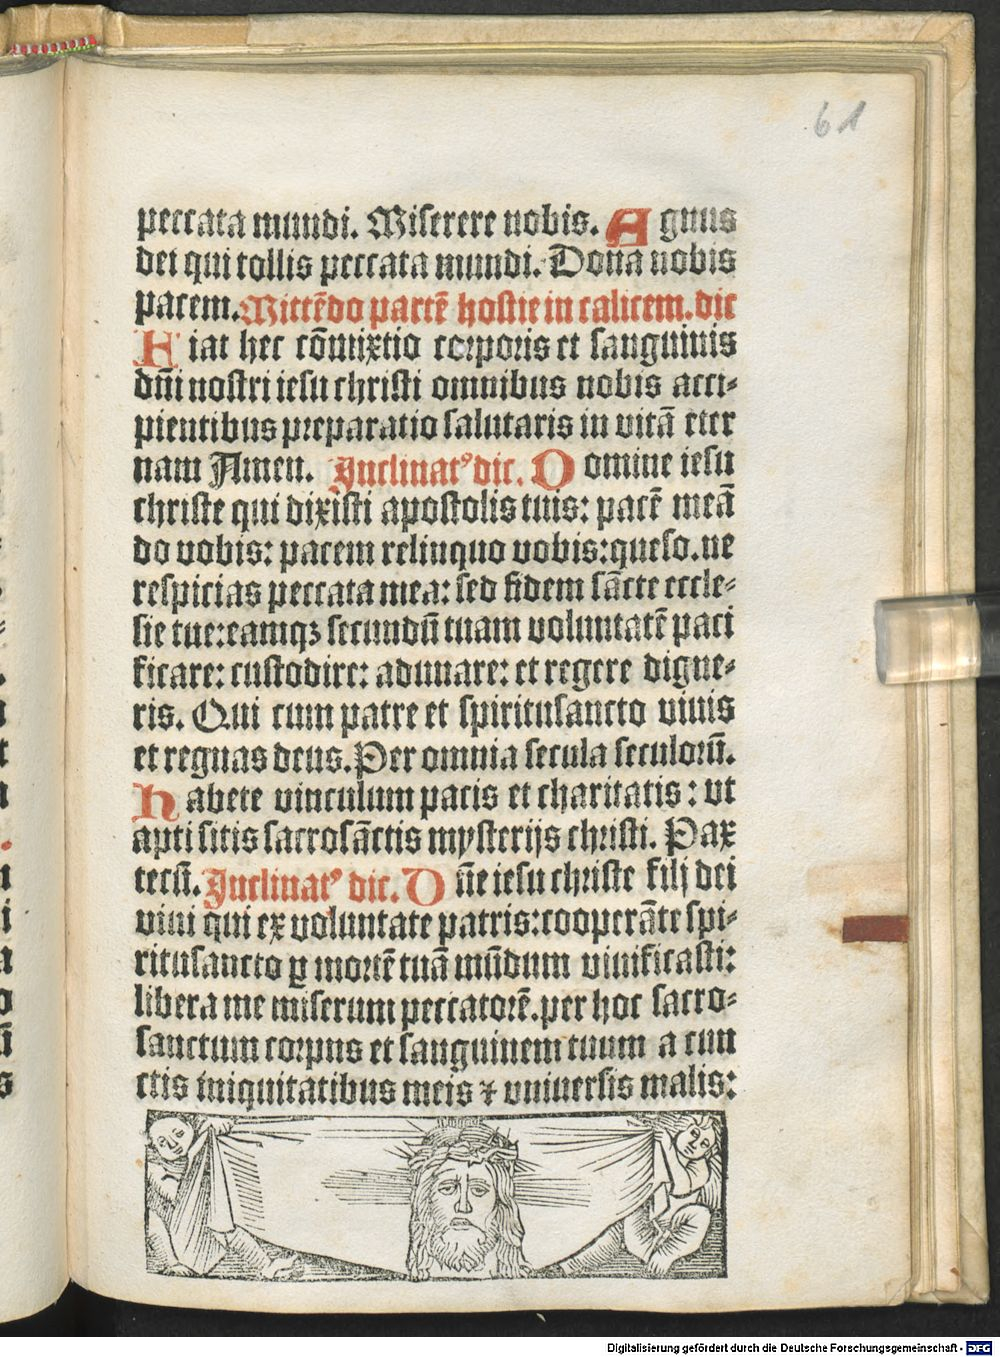 61
peccata mundi. Miserere nobis. Agnus
dei qui tollis peccata mundi. Dona nobis
pacem. Mittēdo partē hostie in calicem. dic
Fiat hec cōmixtio corporis et sanguinis
dn̄i nostri iesu christi omnibus nobis acci-
pientibus preparatio salutaris in vitā eter
nam Amen. Inclinatꝰ dic. Domine iesu
christe qui dixisti apostolis tuis: pacē meā
do vobis: pacem relinquo vobis: queso. ne
respicias peccata mea: sed fidem sācte eccle-
sie tue: eamqꝫ secundū tuam voluntatē paci
ficare: custodire: adunare: et regere digne-
ris. Qui cum patre et spiritusancto viuis
et regnas deus. Per omnia secula seculorū.
Habete vinculum pacis et charitatis: vt
apti sitis sacrosāctis mysterijs christi. Pax
tecū. Inclinatꝰ dic. Dn̄e iesu christe filj dei
viui qui ex voluntate patris: cooperāte spi-
ritusancto ꝑ mortē tuā mūdum viuificasti:
libera me miserum peccatorē. per hoc sacro-
sanctum corpus et sanguinem tuum a cun
ctis iniquitatibus meis ⁊ vniuersis malis:
Digitalisierung gefördert durch die Deutsche Forschungsgemeinschaft - DFG